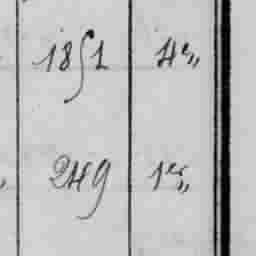 1851 4e„
249 1er„